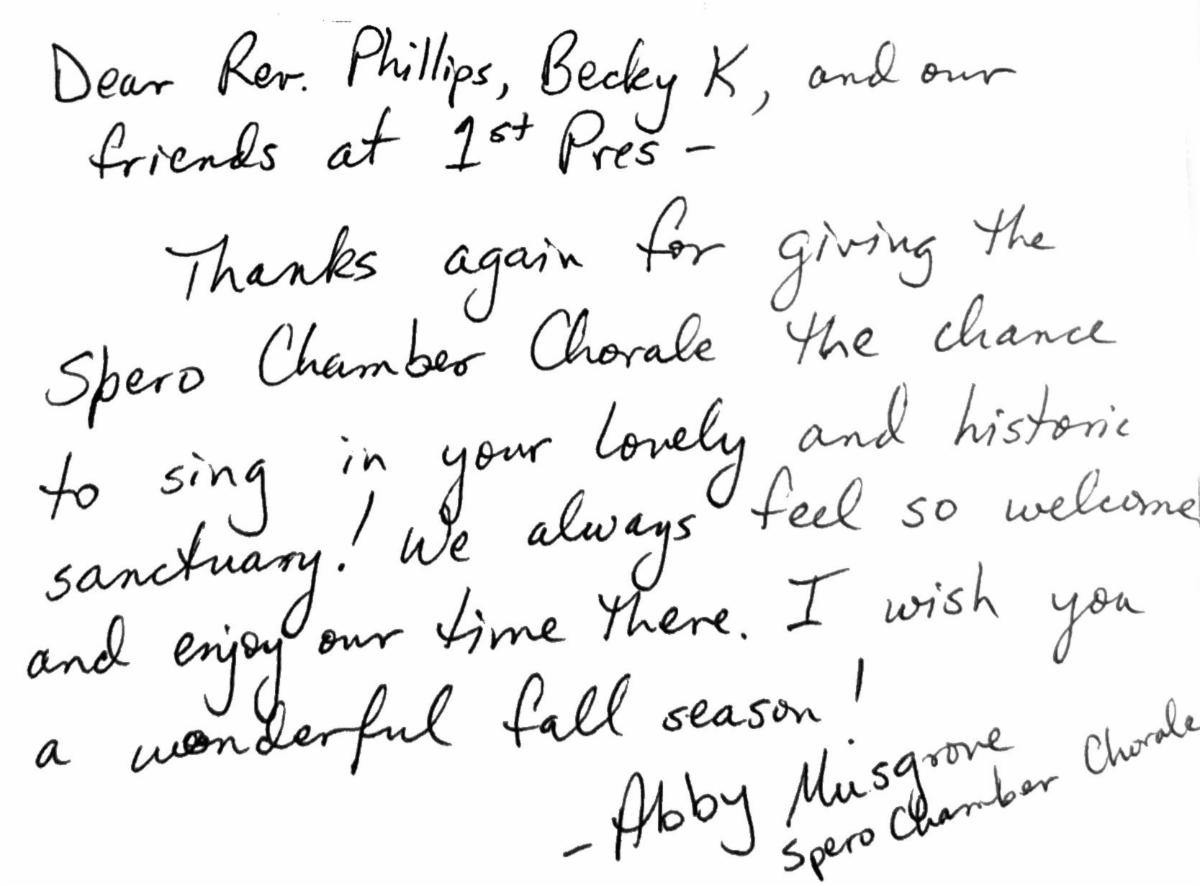 Dear Rev. Phillips, Becky K, and our
friends at 1st Pres -
Thanks again for giving the
Spero Chamber Chorale the chance
to sing in your lovely and historic
sanctuary! We always feel so welcome
and enjoy our time there. I wish you
a wonderful fall season!
- Abby Musgrove
Spero Chamber Chorale